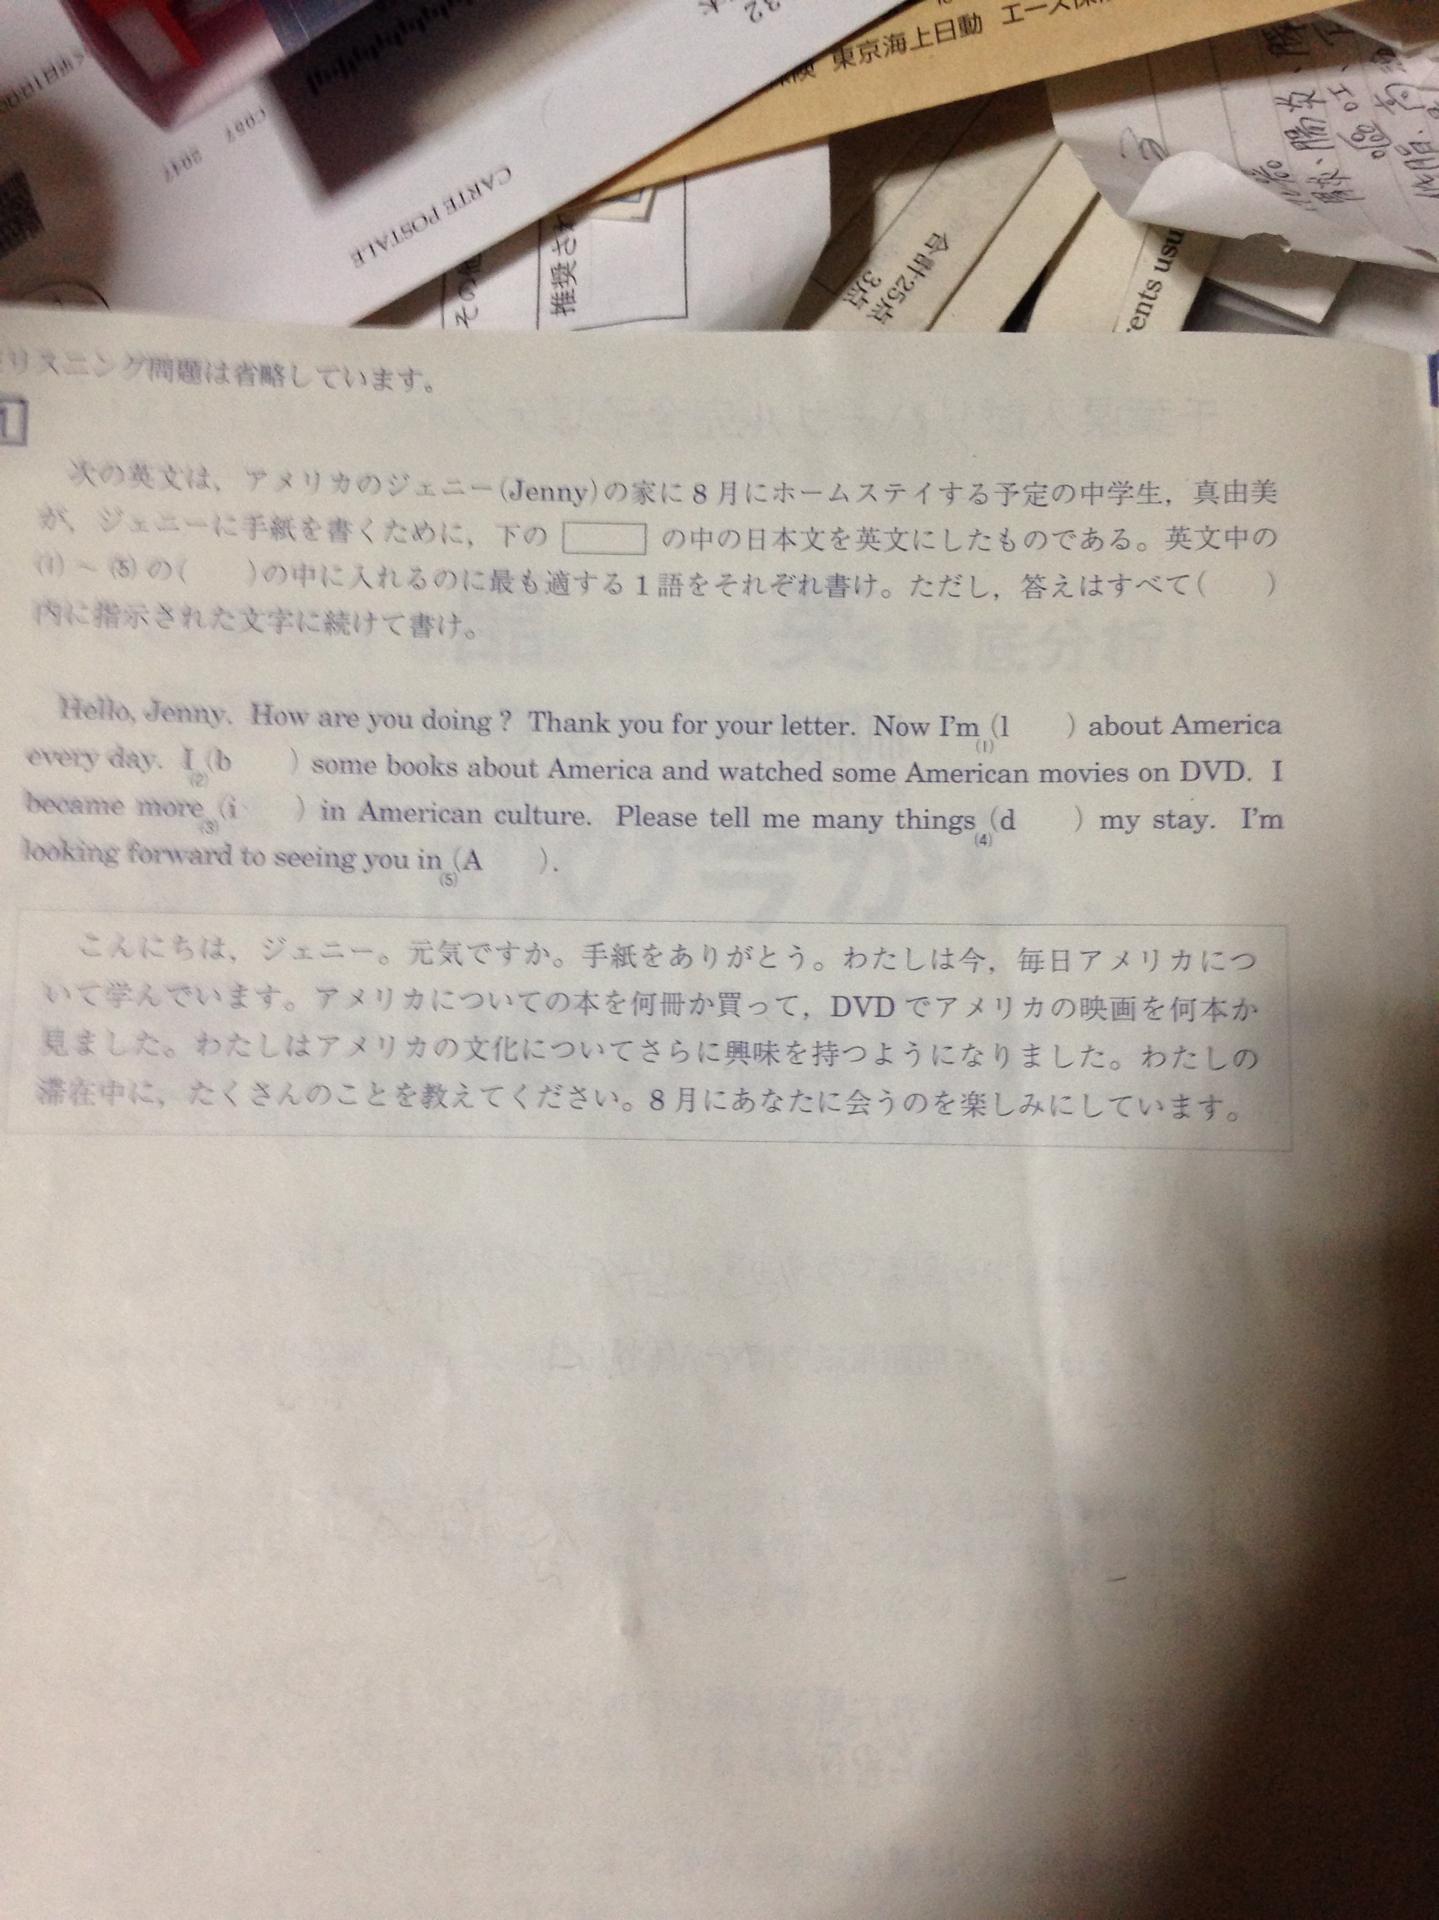 東京海上日動
CARTE POSTALE
推奨され
合計25点
3点
ents usu
リスニング問題は省略しています。
1
次の英文は，アメリカのジェニー(Jenny)の家に8月にホームステイする予定の中学生，真由美
が，ジェニーに手紙を書くために，下の の中の日本文を英文にしたものである。英文中の
(1)～(5)の( )の中に入れるのに最も適する1語をそれぞれ書け。ただし，答えはすべて( )
内に指示された文字に続けて書け。
Hello, Jenny. How are you doing? Thank you for your letter. Now I'm (1)(l ) about America
every day. I (2)(b ) some books about America and watched some American movies on DVD. I
became more (3)(i ) in American culture. Please tell me many things (4)(d ) my stay. I'm
looking forward to seeing you in (5)(A ).
こんにちは，ジェニー。元気ですか。手紙をありがとう。わたしは今，毎日アメリカにつ
いて学んでいます。アメリカについての本を何冊か買って，DVDでアメリカの映画を何本か
見ました。わたしはアメリカの文化についてさらに興味を持つようになりました。わたしの
滞在中に，たくさんのことを教えてください。8月にあなたに会うのを楽しみにしています。